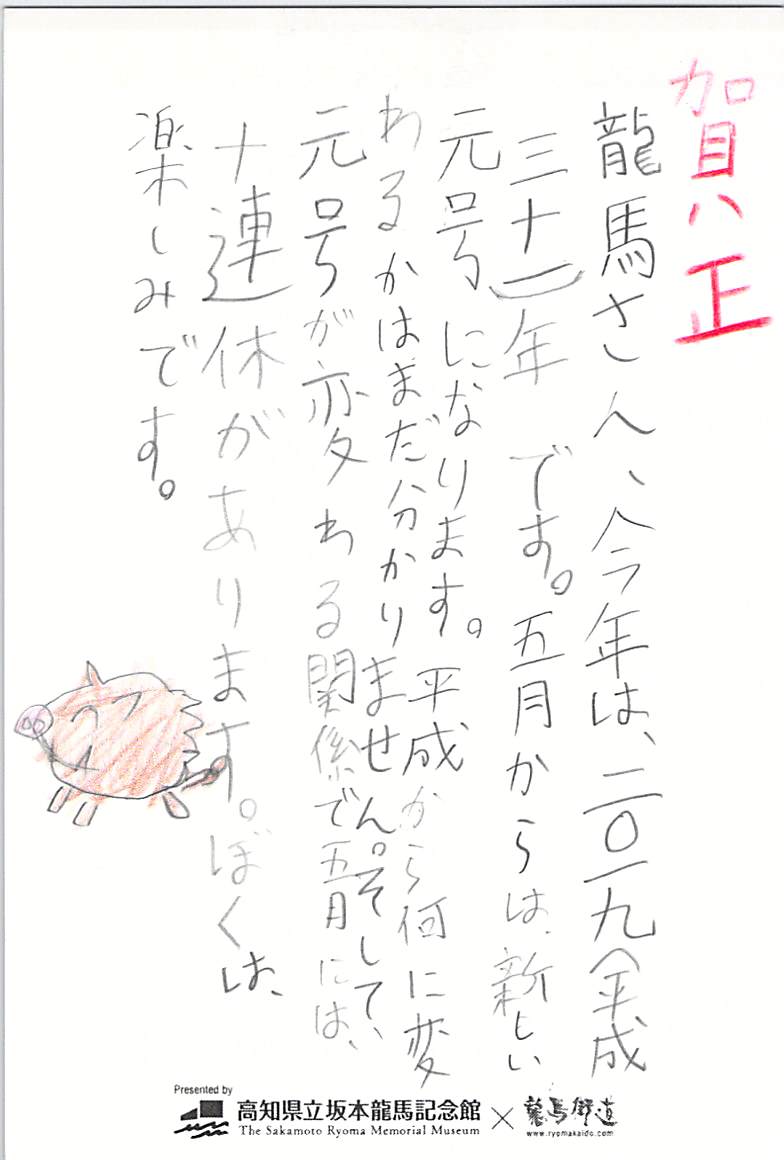 賀正
龍馬さん、今年は、二〇一九(平成
三十一)年です。五月からは、新しい
元号になります。平成から何に変
わるかはまだ分かりません。そして、
元号が変わる関係で五月には、
十連休があります。ぼくは、
楽しみです。
Presented by
高知県立坂本龍馬記念館
The Sakamoto Ryoma Memorial Museum
×
龍馬街道
www.ryomakaido.com